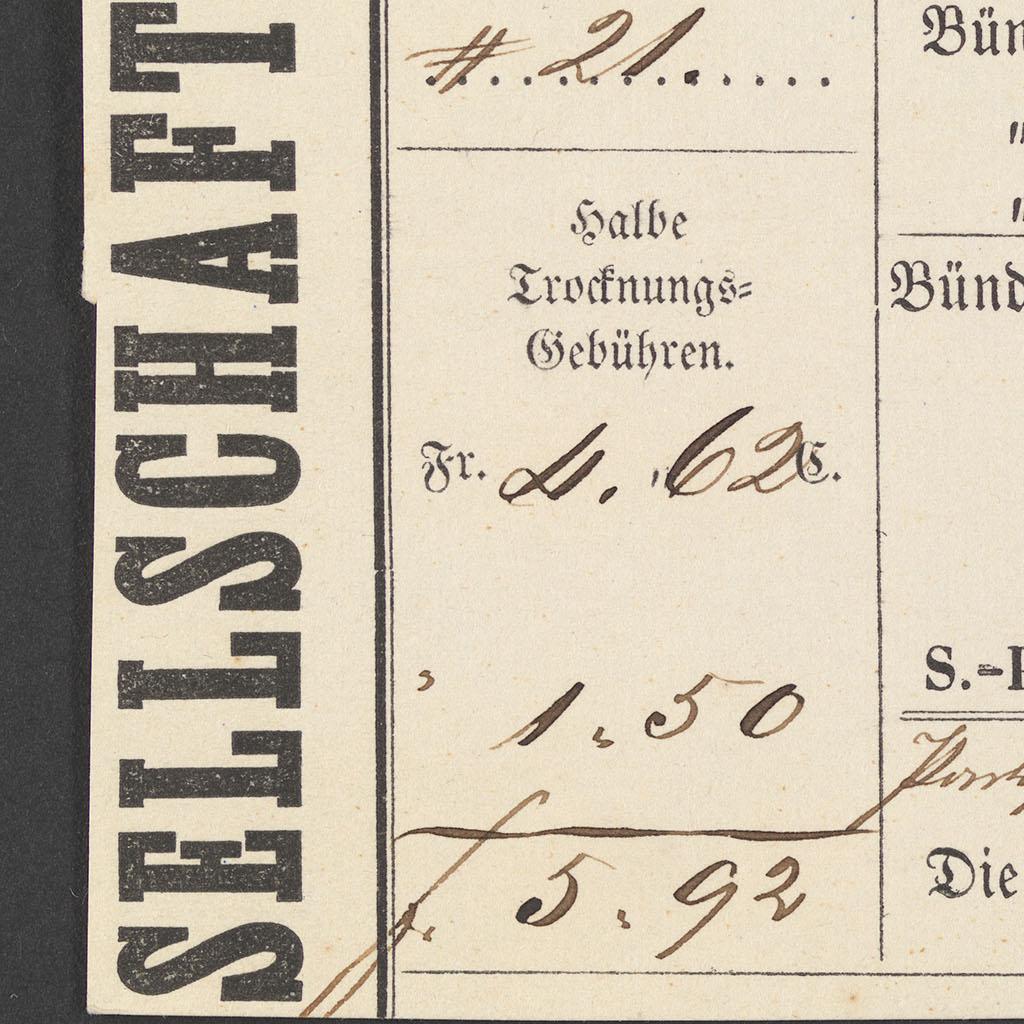 SELLSCHAFT
# 21
Halbe
Trocknungs=
Gebühren.
Fr. 4. „62 C.
" 1 „ 50
fr. 5 „ 92
Bün
"
"
Bünd
S.-
Die